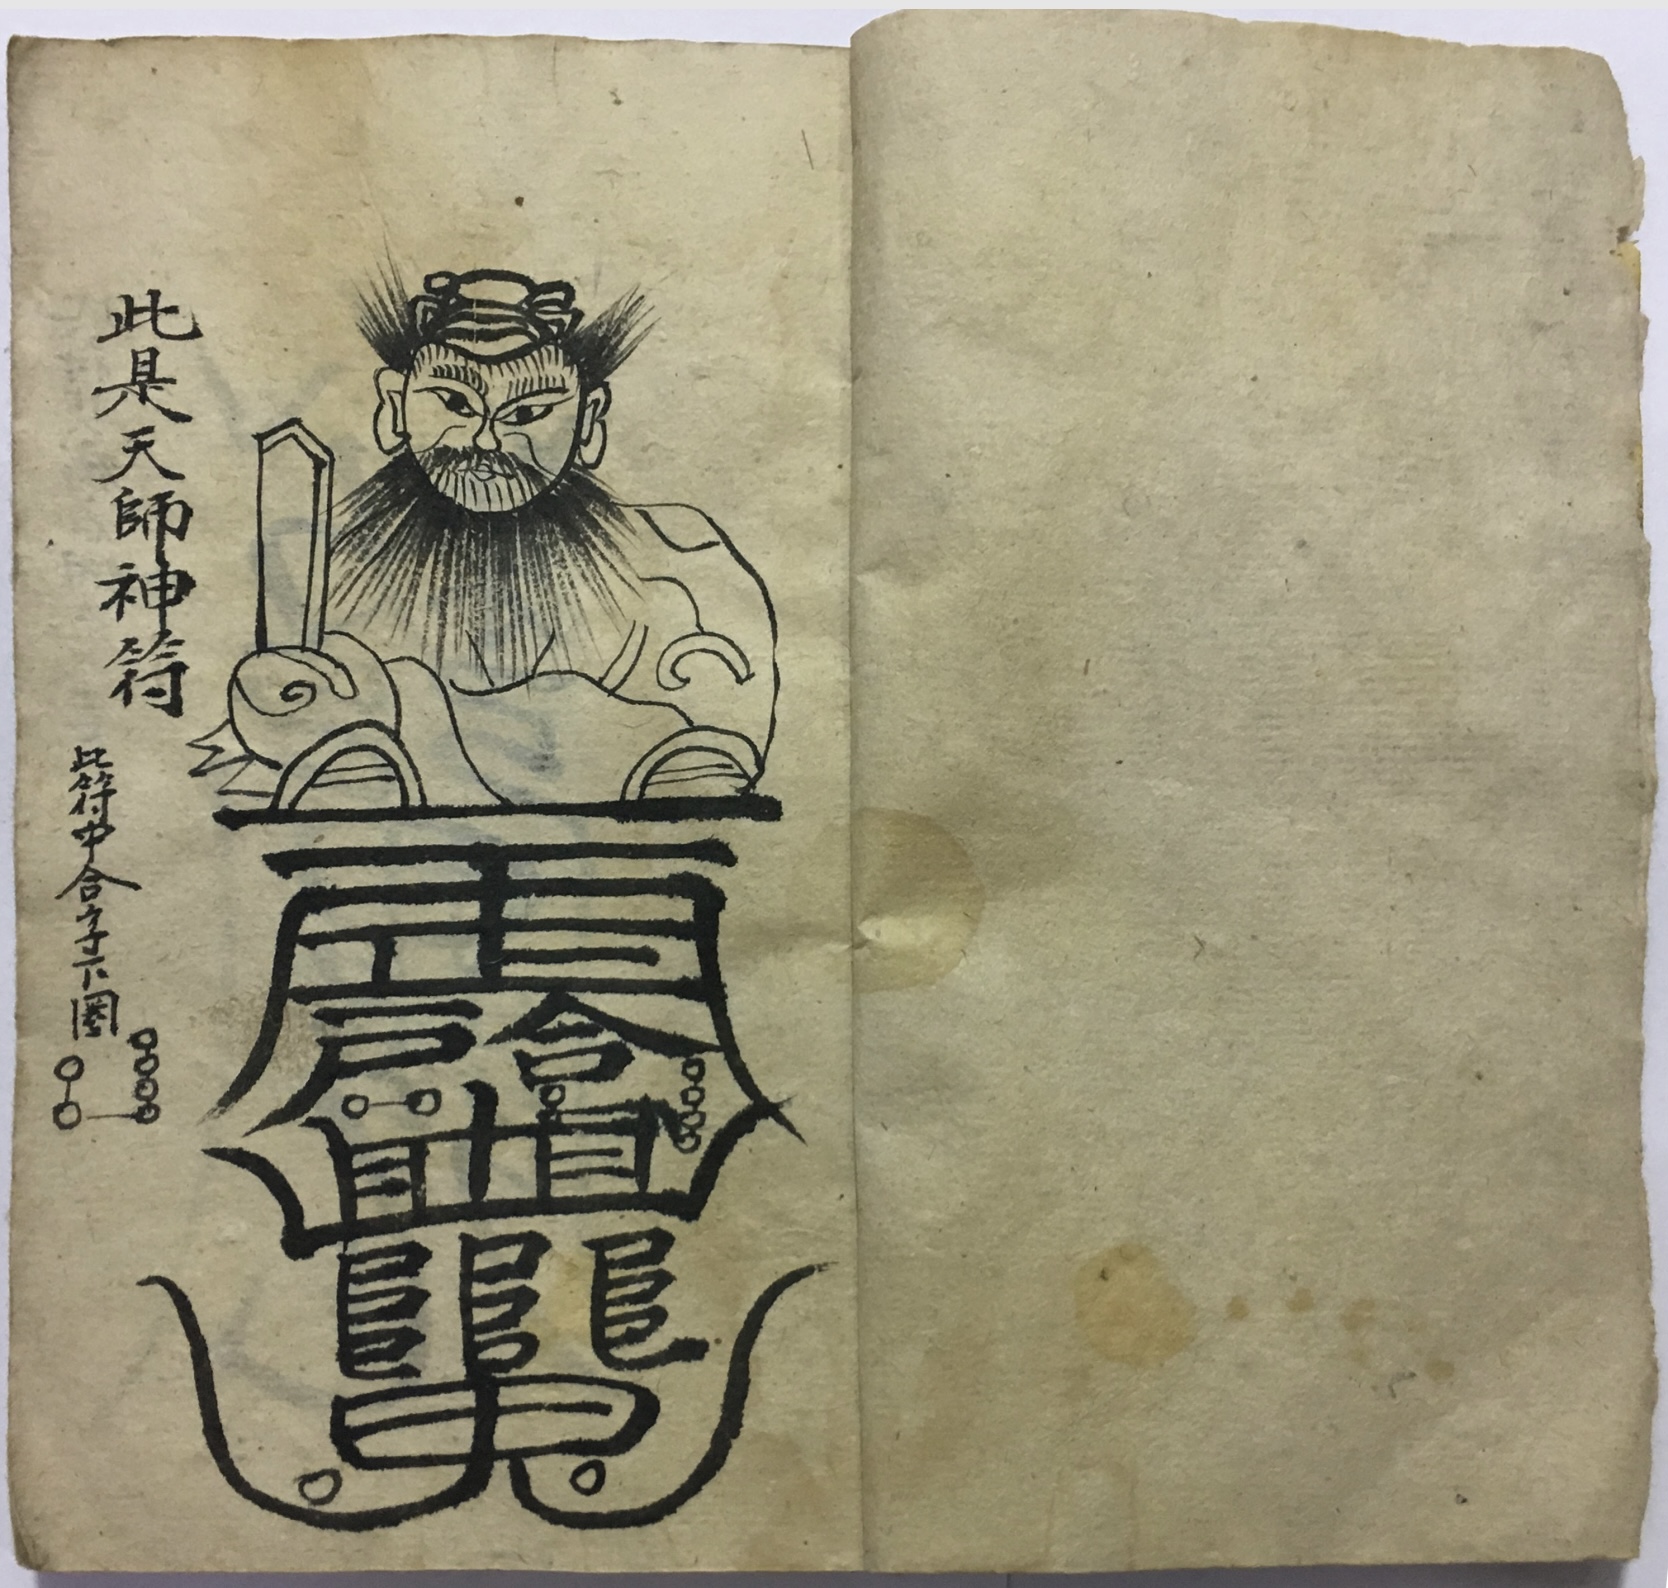 此是天師神符
此符中合字下圈